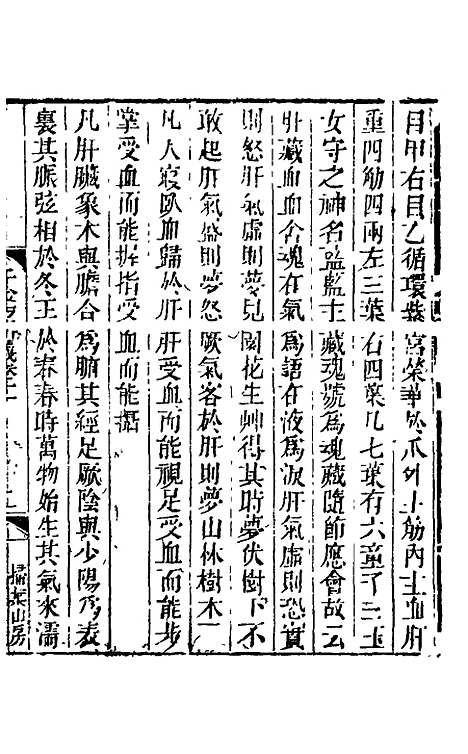 目甲右目乙循環紫宮榮華於爪外主筋內主血肝
重四觔四兩左三葉右四葉凡七葉有六童子三玉
女守之神名藍藍主藏魂號為魂藏隨節應會故云
肝藏血血舍魂在氣為語在液為淚肝氣虛則恐實
則怒肝氣虛則夢見園苑生艸得其時夢伏樹下不
敢起肝氣盛則夢怒厥氣客於肝則夢山林樹木
凡人寢臥血歸於肝肝受血而能視足受血而能步
掌受血而能握指受血而能攝
凡肝臟象木與膽合為腑其經足厥陰與少陽為表
裏其脈弦相於冬王於春春時萬物始生其氣來濡
掃葉山房